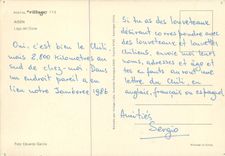 POSTAL Village 113
AISEN
Lago del Toro
Oui, c'est bien le Chili,
mais 2,800 kilometres au
sud de chez-moi. Dans
un endroit pareil, a eu
lieu notre Jamboree 1986
Foto: Eduardo García
Si tu as des louveteaux
désirant correspondre avec
des louveteaux et louvettes
chiliens, envoie moi leurs
noms, adresses et âge et
tes enfants auront une
lettre du Chili en
anglais, français ou espagnol
Amitiés
Sergio